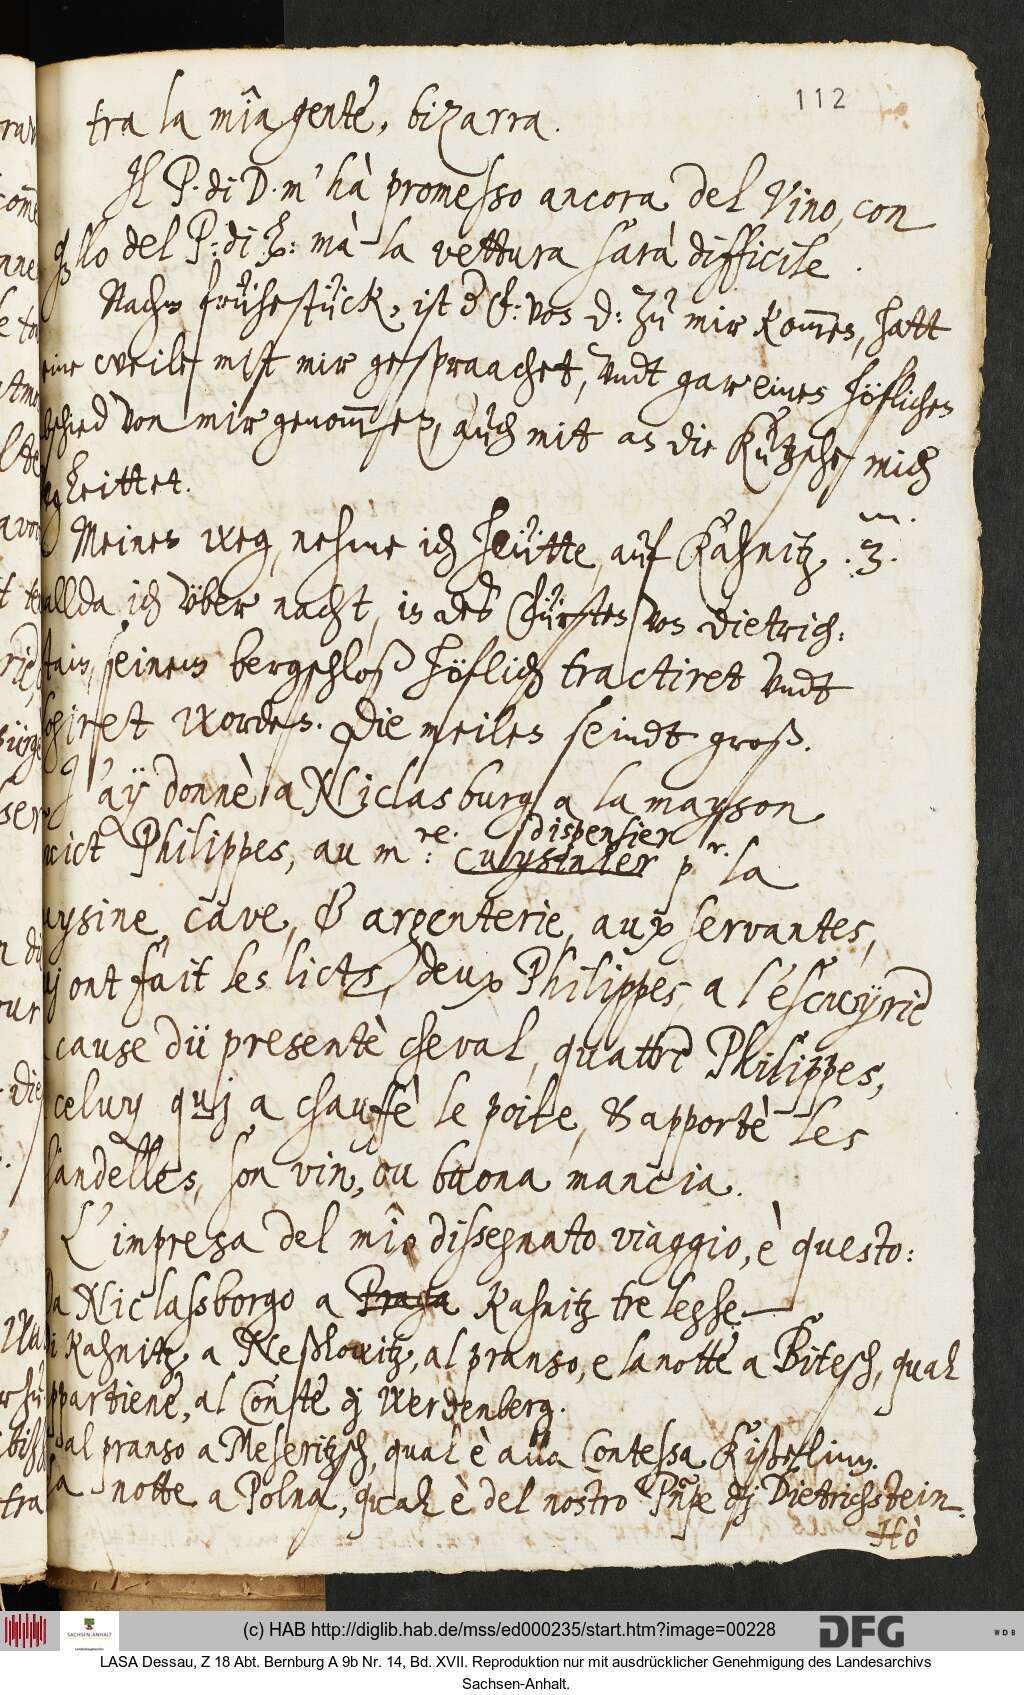 112
tra la mîa gente, bizarra.
Il P. di D. m'hà promesso ancora del Vino, con
llo del P: di L: mà la vettura sarà difficile.
Nachm frühestück, ist d f: von d: zu mir kom̄en, hatt
eine weile mitt mir gespraachet, Vndt gar einen höflichen
abschied von mir genom̄en, auch mitt an die kutzsche mich
begleittet.
Meinen weg, nehme ich heütte, auf Kahnitz. 3. m.
allda ich über nacht, in des Fürsten von Dietrich:
stain, seinem bergschloß höflich tractiret Vndt
logiret worden. Die meilen seindt groß.
J'aÿ donnè a Niclasburg a la mayson
huict Philippes, au m:re. cuysinier dispensier pr. la
cuysine, cave, & argenterie, aux servantes,
quj ont fait les licts, deux Philippes, a l'escuyrie
a cause dü presentè cheval, quattre Philippes,
a celuy quj a chauffè le poile, & apportè les
chandelles, son vin, ou buona mancia.
L'impresa del mîo dissegnato viaggio, è questo:
Da Niclassborgo a Praga Kahnitz tre leghe.
Di Kahnitz, a Neßlowitz, al pranso, e la notte a Bitesch, qual
appartiene, al Conte dj Werdenberg.
dal pranso a Meseritzsch, qual è alla Contessa Kißelinn.
la notte a Polna, qual è del nostro Pn̄pe dj Dietrichstein.
Hò
(c) HAB http://diglib.hab.de/mss/ed000235/start.htm?image=00228
SACHSEN-ANHALT
DFG
WDB
LASA Dessau, Z 18 Abt. Bernburg A 9b Nr. 14, Bd. XVII. Reproduktion nur mit ausdrücklicher Genehmigung des Landesarchivs
Sachsen-Anhalt.